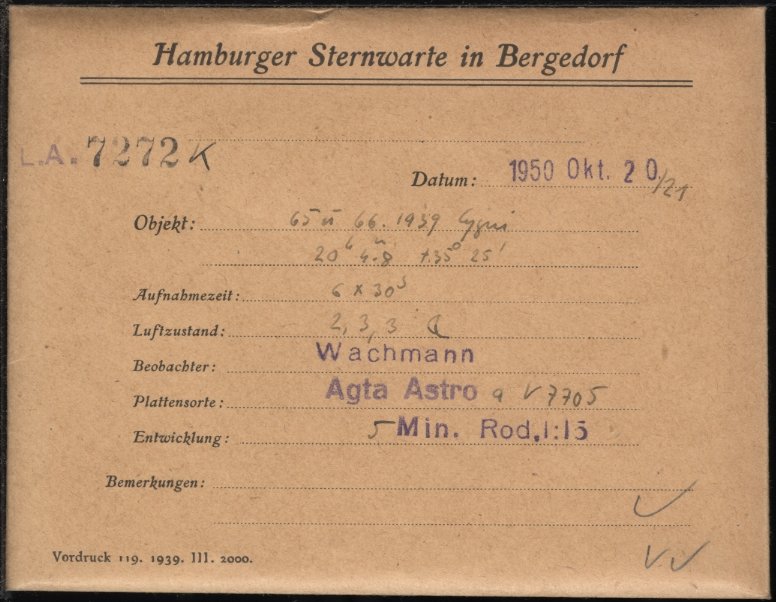 Hamburger Sternwarte in Bergedorf
L.A. 7272 K
Datum: 1950 Okt. 20/21
Objekt: 65 u 66. 1939 Cygni
20h 4m.8 +35° 25'
Aufnahmezeit: 6 x 30s
Luftzustand: 2, 3, 3
Beobachter: Wachmann
Plattensorte: Agta Astro a V 7705
Entwicklung: 5 Min. Rod. 1:15
Bemerkungen:
Vordruck 119. 1939. III. 2000.